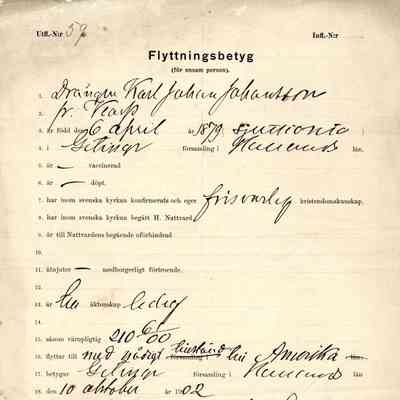 Utfl.-N:r 59 Infl.-N:r
Flyttningsbetyg
(för ensam person).
1. Drängen Karl Johan Johansson
2. fr.
3. är född den 6 april år 1879
4. i Getinge församling i Hallands län.
5. är — vaccinerad
6. är — döpt.
7. har inom svenska kyrkan konfirmerats och eger kristendomskunskap.
8. har inom svenska kyrkan begått H. Nattvard
9. är till Nattvardens begående oförhindrad
10.
11. åtnjuter — medborgerligt förtroende.
12.
13. är till äktenskap ledig
14.
15. såsom värnpligtig
16. flyttar till med församling i till Amerika län.
17. betygar Getinge församling i Hallands län
18. den 10 oktober år 1902